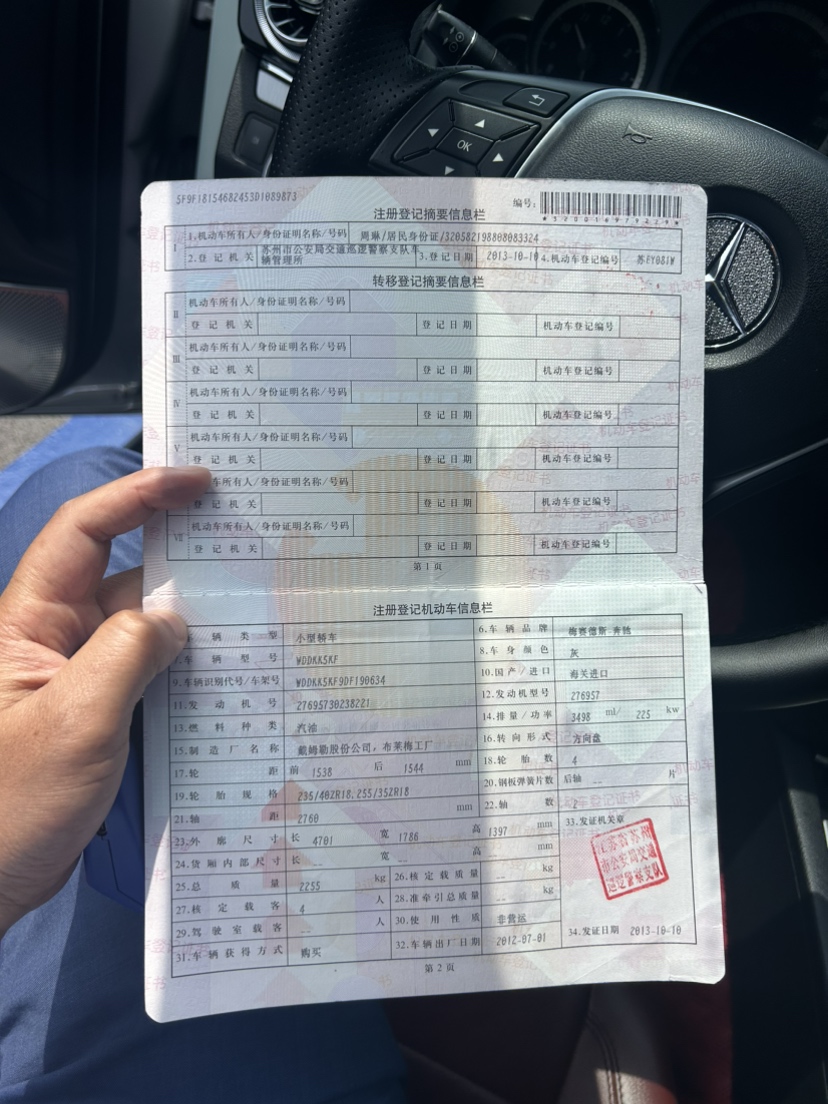 5F9F18154682453D1089873
注册登记摘要信息栏
编号:
I 1.机动车所有人/身份证明名称/号码 周琳/居民身份证/320582198808083324
2.登记机关 苏州市公安局交通巡逻警察支队车辆管理所 3.登记日期 2013-10-10 4.机动车登记编号 苏FY081W
转移登记摘要信息栏
II 机动车所有人/身份证明名称/号码
登记机关 登记日期 机动车登记编号
III 机动车所有人/身份证明名称/号码
登记机关 登记日期 机动车登记编号
IV 机动车所有人/身份证明名称/号码
登记机关 登记日期 机动车登记编号
V 机动车所有人/身份证明名称/号码
登记机关 登记日期 机动车登记编号
车所有人/身份证明名称/号码
登记机关 登记日期 机动车登记编号
VII 机动车所有人/身份证明名称/号码
登记机关 登记日期 机动车登记编号
第1页
注册登记机动车信息栏
车辆类型 小型轿车 6.车辆品牌 梅赛德斯-奔驰
车辆型号 WDDKK5KF 8.车身颜色 灰
9.车辆识别代号/车架号 WDDKK5KF9DF190634 10.国产/进口 海关进口
11.发动机号 27695730238221 12.发动机型号 276957
13.燃料种类 汽油 14.排量/功率 3498 ml/ 225 kw
15.制造厂名称 戴姆勒股份公司,布莱梅工厂 16.转向形式 方向盘
17.轮距 前 1538 后 1544 mm 18.轮胎数 4
19.轮胎规格 235/40ZR18,255/35ZR18 20.钢板弹簧片数 后轴 -- 片
21.轴距 2760 mm 22.轴数 2
23.外廓尺寸 长 4701 宽 1786 高 1397 mm 33.发证机关章
24.货厢内部尺寸 长 -- 宽 -- 高 -- mm
25.总质量 2255 kg 26.核定载质量 -- kg
27.核定载客 4 人 28.准牵引总质量 -- kg
29.驾驶室载客 -- 人 30.使用性质 非营运
31.车辆获得方式 购买 32.车辆出厂日期 2012-07-01 34.发证日期 2013-10-10
江苏省苏州
市公安局交通
巡逻警察支队
第2页
OK